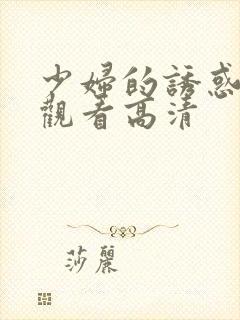 少婦的誘惑
觀看高清
莎麗